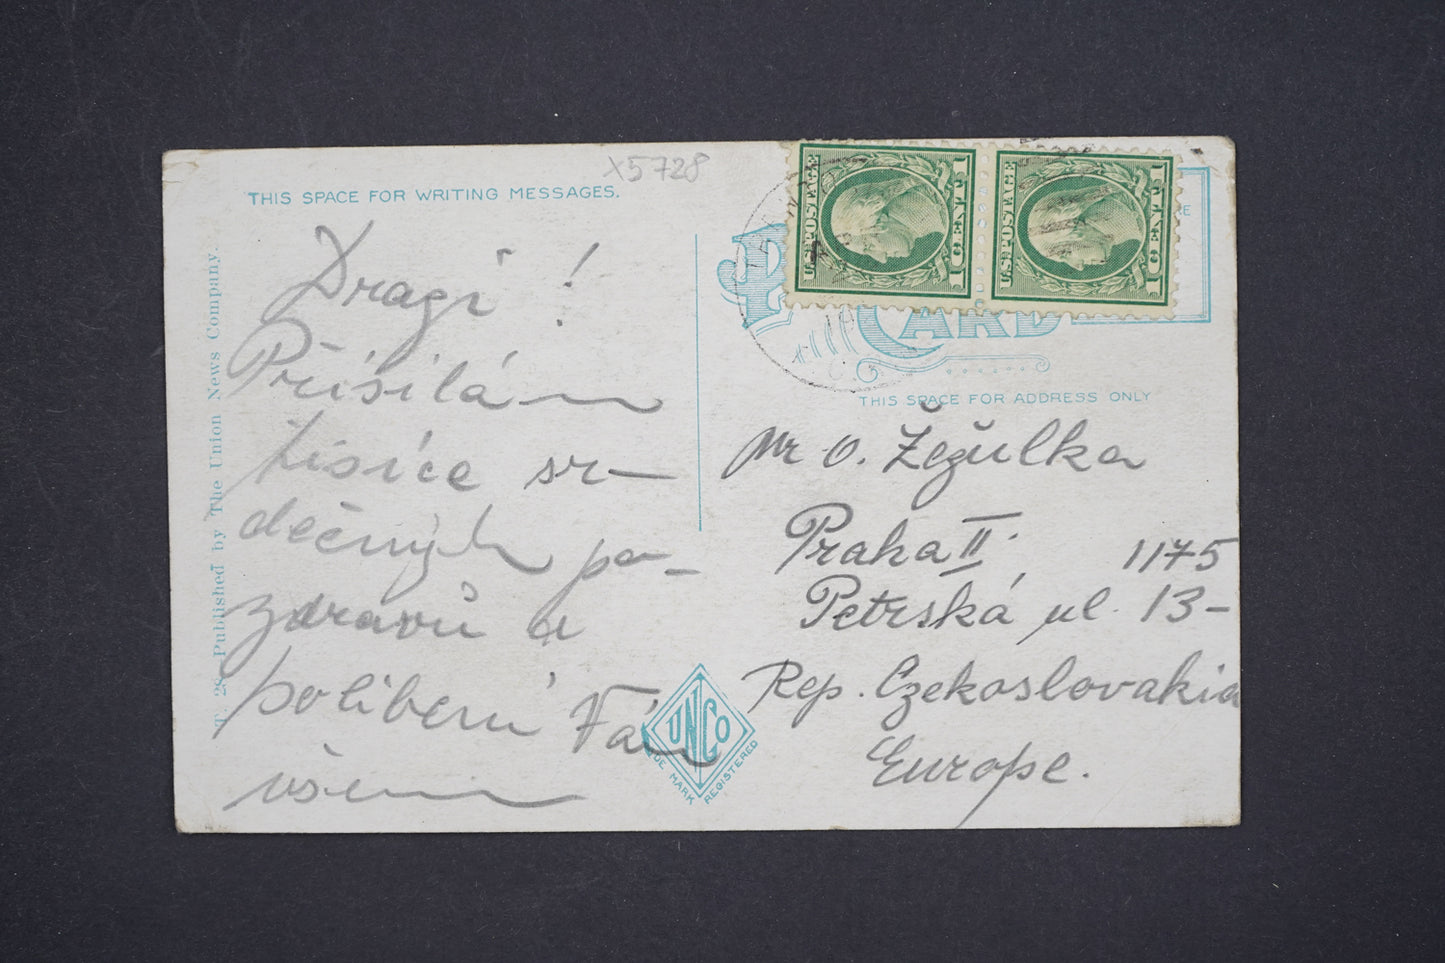 X5728
THIS SPACE FOR WRITING MESSAGES.
Dragí!
Přísílám
tisíce sr-
dečných po-
zdravů a
políbení Vám
všem
T. 28. Published by The Union News Company.
UNCO
TRADE MARK REGISTERED
U.S. POSTAGE
1 CENT 1
U.S. POSTAGE
1 CENT 1
CARD
THIS SPACE FOR ADDRESS ONLY
Mr O. Žežulka
Praha II. 1175
Petrská ul. 13-
Rep. Czekoslovakia
Europe.